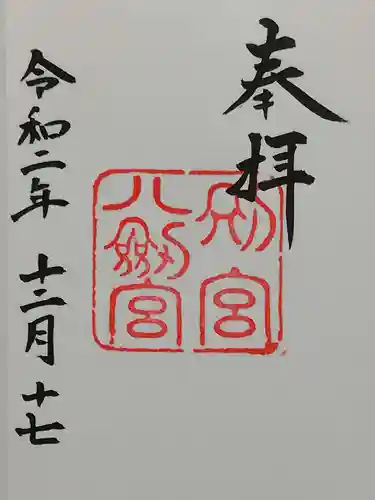 奉拝
別宮
八劔宮
令和二年 十二月 十七